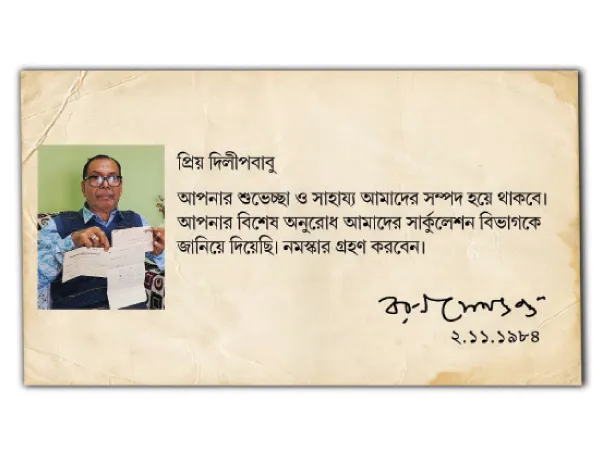 প্রিয় দিলীপবাবু
আপনার শুভেচ্ছা ও সাহায্য আমাদের সম্পদ হয়ে থাকবে।
আপনার বিশেষ অনুরোধ আমাদের সার্কুলেশন বিভাগকে
জানিয়ে দিয়েছি। নমস্কার গ্রহণ করবেন।
২.১১.১৯৮৪